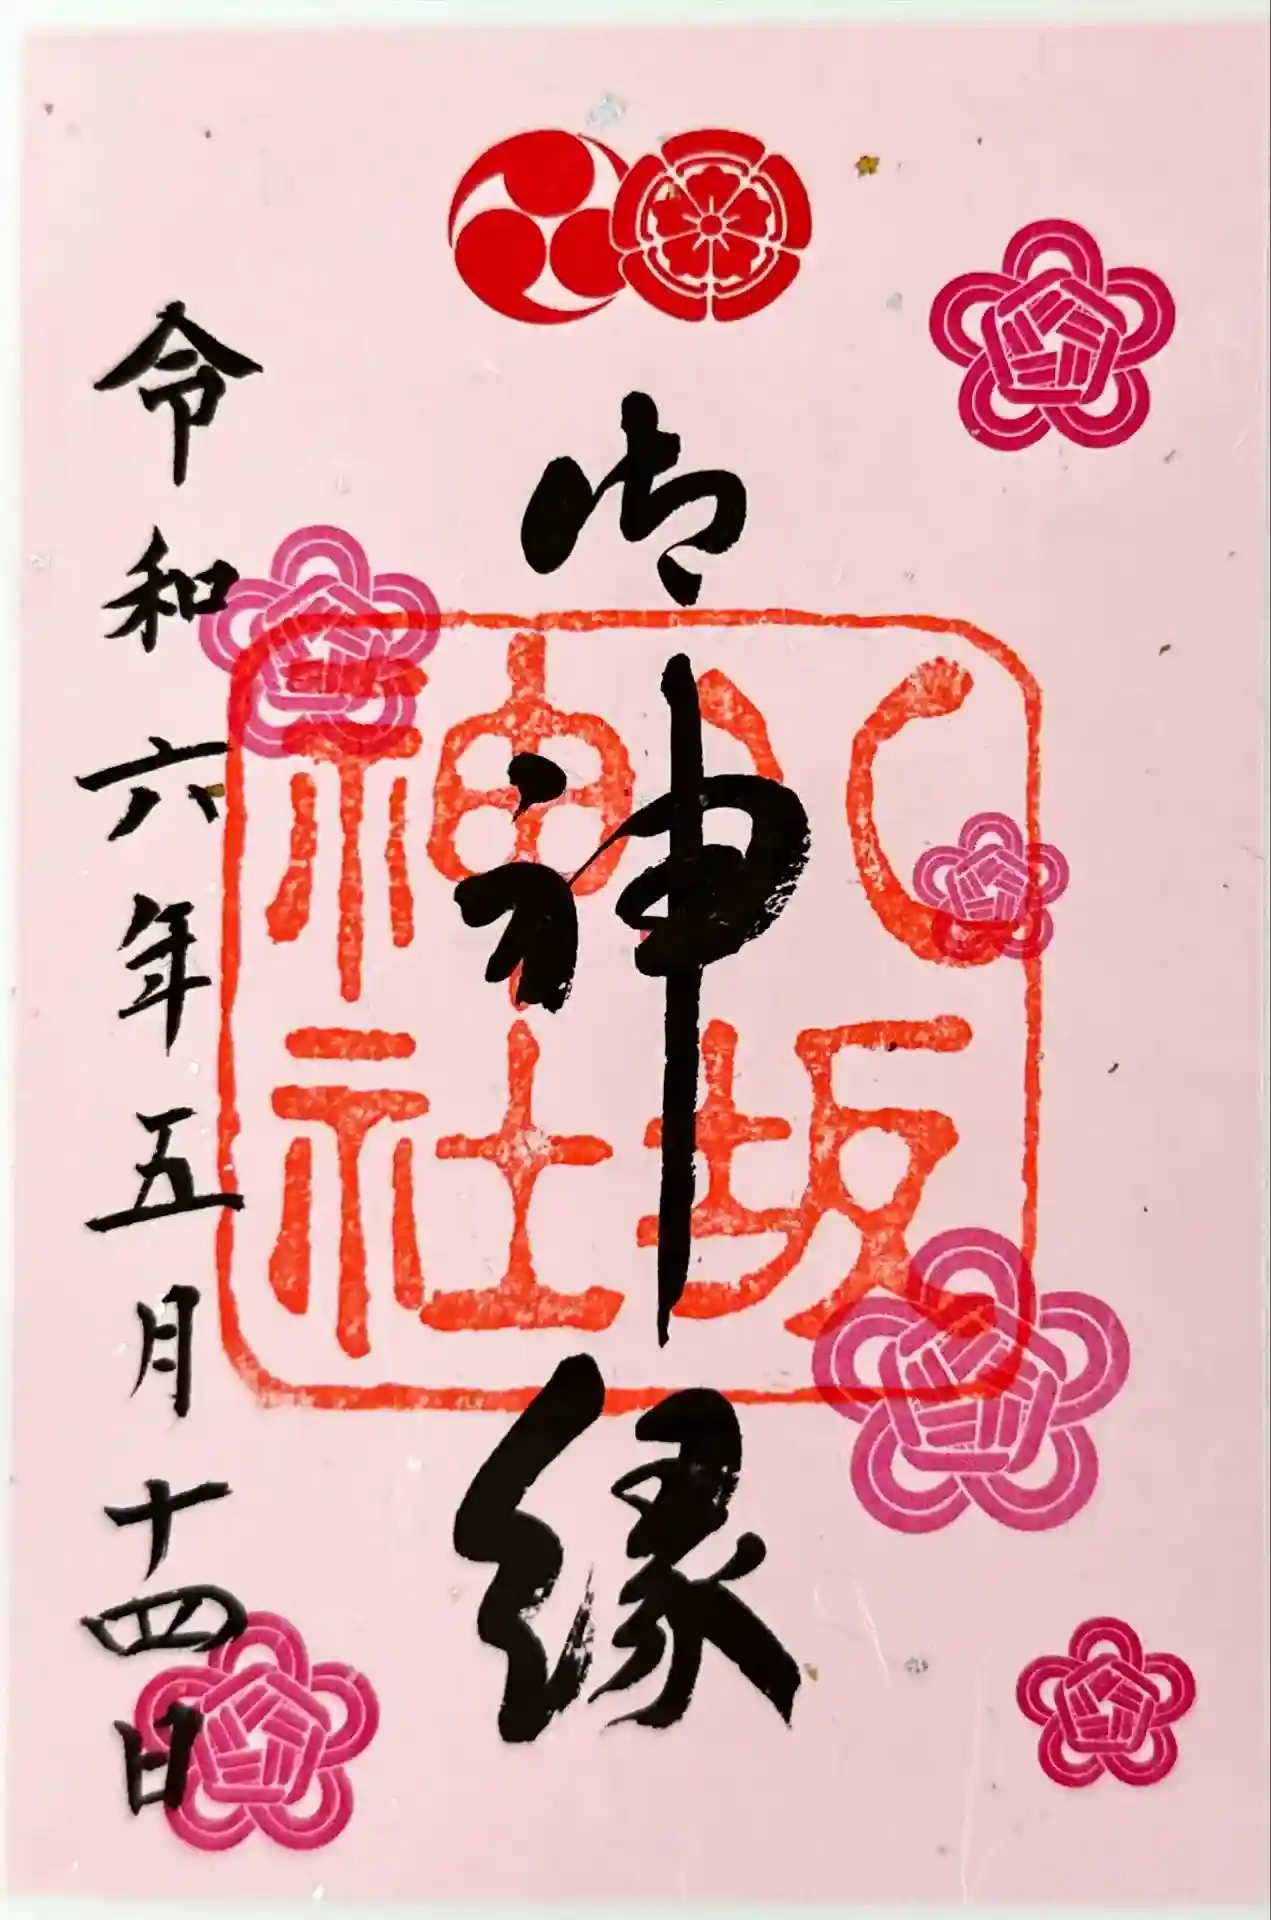 御神縁
八坂
神社
令和六年五月十四日